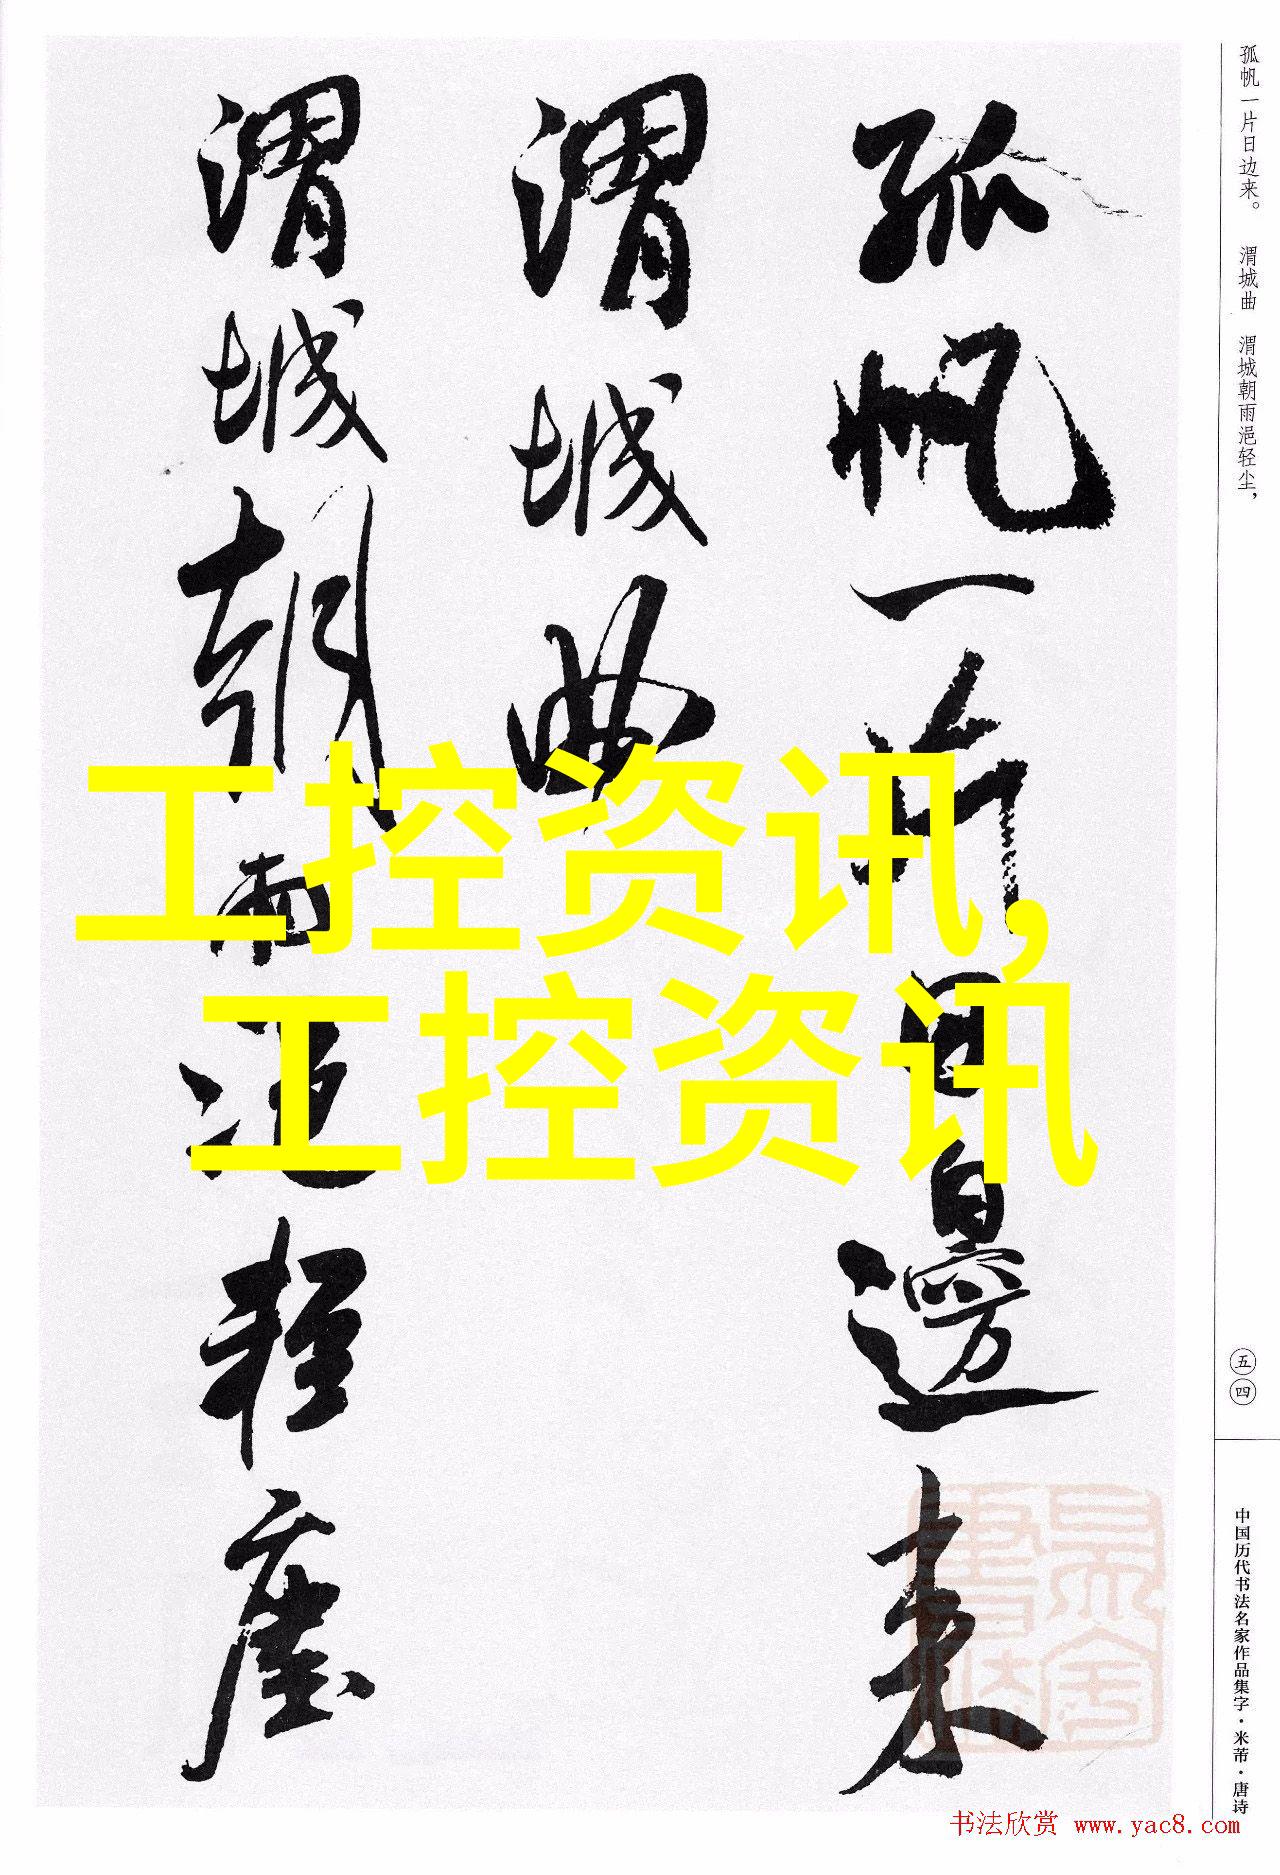 孤帆一片日边来。 渭城曲 渭城朝雨浥轻尘，
孤帆一片日邊来
渭城曲
渭城朝雨浥轻塵
工控资讯,
工控资讯
五四
中国历代书法名家作品集字·米芾·唐诗
书法欣赏 www.yac8.com